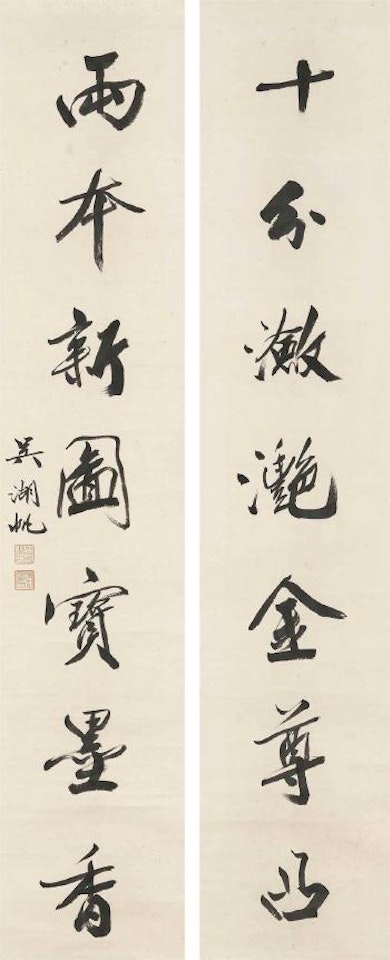 十分潋灧金尊凸
兩本新圖寶墨香
吳湖帆